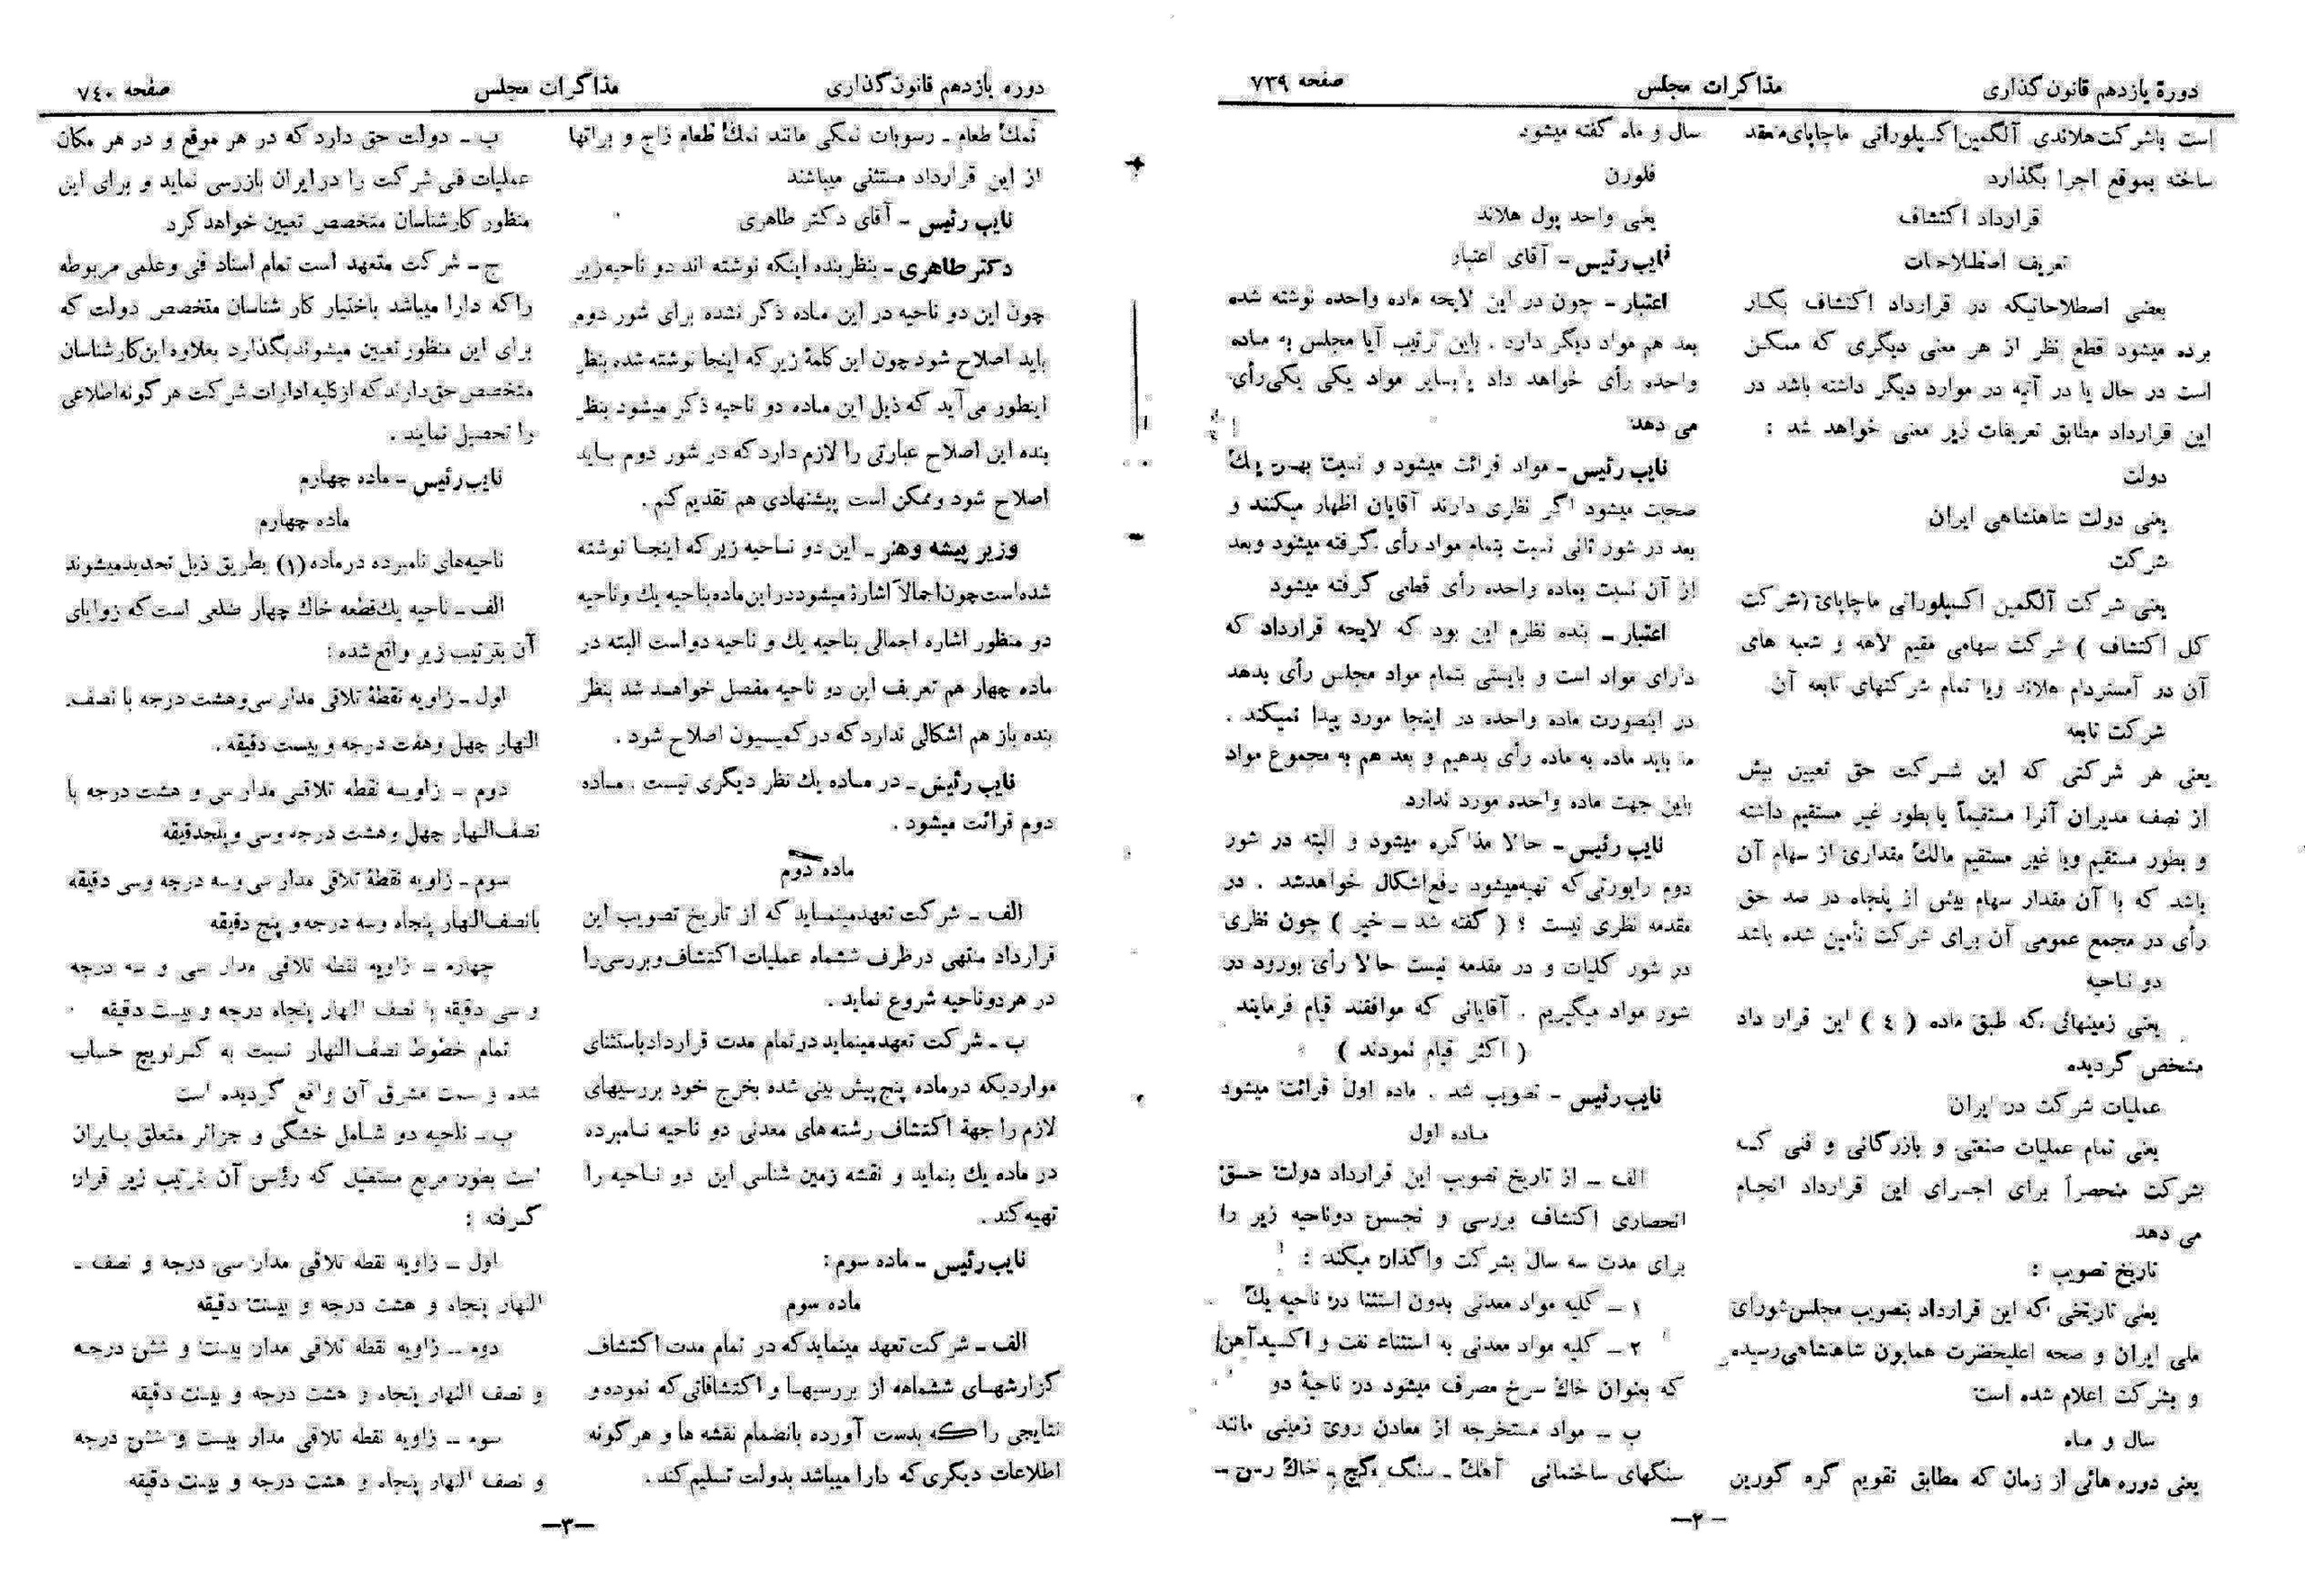 دورهٔ یازدهم قانون گذاری
مذاکرات مجلس
صفحه ۷۳۹
است باشرکت هلاندی آلگمین اکسپلوراتی ماچاپای منعقد
ساخته بموقع اجرا بگذارد
قرارداد اکتشاف
تعریف اصطلاحات
بعضی اصطلاحاتیکه در قرارداد اکتشاف بکار
برده میشود قطع نظر از هر معنی دیگری که ممکن
است در حال یا در آتیه در موارد دیگر داشته باشد در
این قرارداد مطابق تعریفات زیر معنی خواهد شد :
دولت
یعنی دولت شاهنشاهی ایران
شرکت
یعنی شرکت آلگمین اکسپلوراتی ماچاپای (شرکت
کل اکتشاف ) شرکت سهامی مقیم لاهه و شعبه های
آن در آمستردام هلاند ویا تمام شرکتهای تابعه آن
شرکت تابعه
یعنی هر شرکتی که این شرکت حق تعیین بیش
از نصف مدیران آنرا مستقیماً یا بطور غیر مستقیم داشته
و بطور مستقیم ویا غیر مستقیم مالک مقداری از سهام آن
باشد که با آن مقدار سهام بیش از پنجاه در صد حق
رأی در مجمع عمومی آن برای شرکت تأمین شده باشد
دو ناحیه
یعنی زمینهائی که طبق ماده ( ٤ ) این قرار داد
مشخص گردیده
عملیات شرکت در ایران
یعنی تمام عملیات صنعتی و بازرگانی و فنی که
شرکت منحصراً برای اجرای این قرارداد انجام
می دهد
تاریخ تصویب :
یعنی تاریخی که این قرارداد بتصویب مجلس شورای
ملی ایران و صحه اعلیحضرت همایون شاهنشاهی رسیده
و بشرکت اعلام شده است
سال و ماه
یعنی دوره هائی از زمان که مطابق تقویم گره گورین
سال و ماه گفته میشود
فلورن
یعنی واحد پول هلاند
نایب رئیس - آقای اعتبار
اعتبار - چون در این لایحه ماده واحده نوشته شده
بعد هم مواد دیگر دارد . باین ترتیب آیا مجلس به ماده
واحده رأی خواهد داد یا بسایر مواد یکی یکی رأی
می دهد
نایب رئیس - مواد قرائت میشود و نسبت بهر یک
صحبت میشود اگر نظری دارند آقایان اظهار میکنند و
بعد در شور ثانی نسبت بتمام مواد رأی گرفته میشود وبعد
از آن نسبت بماده واحده رأی قطعی گرفته میشود
اعتبار - بنده نظرم این بود که لایحه قرارداد که
دارای مواد است و بایستی بتمام مواد مجلس رأی بدهد
در اینصورت ماده واحده در اینجا مورد پیدا نمیکند .
ما باید ماده به ماده رأی بدهیم و بعد هم به مجموع مواد
باین جهت ماده واحده مورد ندارد
نایب رئیس - حالا مذاکره میشود و البته در شور
دوم راپورتی که تهیه میشود رفع اشکال خواهد شد . در
مقدمه نظری نیست ؟ ( گفته شد - خیر ) چون نظری
در شور کلیات و در مقدمه نیست حالا رأی بورود در
شور مواد میگیریم . آقایانی که موافقند قیام فرمایند
( اکثر قیام نمودند )
نایب رئیس - تصویب شد . ماده اول قرائت میشود
ماده اول
الف - از تاریخ تصویب این قرارداد دولت حق
انحصاری اکتشاف بررسی و تجسس دوناحیه زیر را
برای مدت سه سال بشرکت واگذار میکند :
۱ - کلیه مواد معدنی بدون استثنا در ناحیه یک
۲ - کلیه مواد معدنی به استثناء نفت و اکسید آهن
که بعنوان خاک سرخ مصرف میشود در ناحیهٔ دو
ب - مواد مستخرجه از معادن روی زمینی مانند
سنگهای ساختمانی آهک - سنگ گچ - خاک رس -
-۲-
دوره یازدهم قانون گذاری
مذاکرات مجلس
صفحه ٧٤٠
نمک طعام - رسوبات نمکی مانند نمک طعام زاج و براتها
از این قرارداد مستثنی میباشند
نایب رئیس - آقای دکتر طاهری
دکتر طاهری - بنظر بنده اینکه نوشته اند دو ناحیه زیر
چون این دو ناحیه در این ماده ذکر نشده برای شور دوم
باید اصلاح شود چون این کلمهٔ زیر که اینجا نوشته شده بنظر
اینطور می آید که ذیل این ماده دو ناحیه ذکر میشود بنظر
بنده این اصلاح عبارتی را لازم دارد که در شور دوم باید
اصلاح شود وممکن است پیشنهادی هم تقدیم کنم .
وزیر پیشه وهنر - این دو ناحیه زیر که اینجا نوشته
شده است چون اجمالا اشاره میشود در این ماده بناحیه یک وناحیه
دو منظور اشاره اجمالی بناحیه یک و ناحیه دو است البته در
ماده چهار هم تعریف این دو ناحیه مفصل خواهد شد بنظر
بنده باز هم اشکالی ندارد که در کمیسیون اصلاح شود .
نایب رئیس - در ماده یک نظر دیگری نیست . ماده
دوم قرائت میشود .
ماده دوم
الف - شرکت تعهد مینماید که از تاریخ تصویب این
قرارداد منتهی در ظرف ششماه عملیات اکتشاف و بررسی را
در هر دوناحیه شروع نماید .
ب - شرکت تعهد مینماید در تمام مدت قرارداد باستثنای
مواردیکه درماده پنج پیش بینی شده بخرج خود بررسیهای
لازم را جهة اکتشاف رشته های معدنی دو ناحیه نامبرده
در ماده یک بنماید و نقشه زمین شناسی این دو ناحیه را
تهیه کند .
نایب رئیس - ماده سوم :
ماده سوم
الف - شرکت تعهد مینماید که در تمام مدت اکتشاف
گزارشهای ششماهه از بررسیها و اکتشافاتی که نموده و
نتایجی را که بدست آورده بانضمام نقشه ها و هر گونه
اطلاعات دیگری که دارا میباشد بدولت تسلیم کند .
ب - دولت حق دارد که در هر موقع و در هر مکان
عملیات فنی شرکت را در ایران بازرسی نماید و برای این
منظور کارشناسان متخصص تعیین خواهد کرد
ج - شرکت متعهد است تمام اسناد فنی وعلمی مربوطه
را که دارا میباشد باختیار کار شناسان متخصص دولت که
برای این منظور تعیین میشوند بگذارد بعلاوه این کارشناسان
متخصص حق دارند که از کلیه ادارات شرکت هر گونه اطلاعی
را تحصیل نمایند .
نایب رئیس - ماده چهارم
ماده چهارم
ناحیه های نامبرده در ماده (۱) بطریق ذیل تحدید میشوند
الف - ناحیه یک قطعه خاک چهار ضلعی است که زوایای
آن بترتیب زیر واقع شده :
اول - زاویه نقطهٔ تلاقی مدار سی وهشت درجه با نصف
النهار چهل وهفت درجه و بیست دقیقه .
دوم - زاویه نقطه تلاقی مدار سی و هشت درجه با
نصف النهار چهل و هشت درجه وسی وپنجدقیقه
سوم - زاویه نقطهٔ تلاقی مدار سی وسه درجه وسی دقیقه
با نصف النهار پنجاه وسه درجه و پنج دقیقه
چهارم - زاویه نقطه تلاقی مدار سی و سه درجه
و سی دقیقه با نصف النهار پنجاه درجه و بیست دقیقه
تمام خطوط نصف النهار نسبت به گرنویچ حساب
شده و سمت مشرق آن واقع گردیده است
ب - ناحیه دو شامل خشگی و جزائر متعلق بایران
است بطور مربع مستطیل که رؤس آن بترتیب زیر قرار
گرفته :
اول - زاویه نقطه تلاقی مدار سی درجه و نصف -
النهار پنجاه و هشت درجه و بیست دقیقه
دوم - زاویه نقطه تلاقی مدار بیست و شش درجه
و نصف النهار پنجاه و هشت درجه و بیست دقیقه
سوم - زاویه نقطه تلاقی مدار بیست و شش درجه
و نصف النهار پنجاه و هشت درجه و بیست دقیقه
-۳-